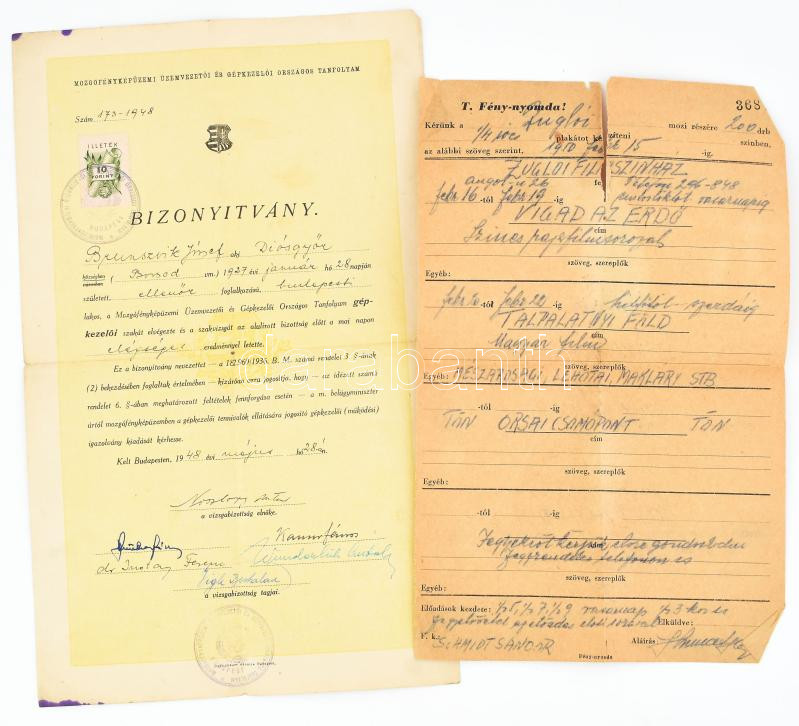 MOZGÓFÉNYKÉPÜZEMI ÜZEMVEZETŐI ÉS GÉPKEZELŐI ORSZÁGOS TANFOLYAM
Szám 173-1948
ILLETÉK
10
FORINT
BIZONYITVÁNY.
Brunszvik József aki Diósgyőr
községben ( Borsod vm.) 1927 évi január hó 28 napján
született, ellenőr foglalkozású, budapesti
lakos, a Mozgófényképüzemi Üzemvezetői és Gépkezelői Országos Tanfolyam gép-
kezelői szakát elvégezte és a szakvizsgát az alulirott bizottság előtt a mai napon
elégséges eredménnyel letette.
Ez a bizonyitvány nevezettet — a 181.960/1935. B. M. számú rendelet 3. §-ának
(2) bekezdésében foglaltak értelmében — kizárólag arra jogositja, hogy — az idézett számú
rendelet 6. §-ában meghatározott feltételek fennforgása esetén — a m. belügyminiszter
úrtól mozgófényképüzemben a gépkezelői tennivalók ellátására jogosító gépkezelői (működési)
igazolvány kiadását kérhesse.
Kelt Budapesten, 1948 évi május hó 28-án.
a vizsgabizottság elnöke.
dr Ferenc
a vizsgabizottság tagjai.
T. Fény-nyomda!
368
Kérünk a Zuglói mozi részére 200 drb
1/4 íves plakátot készíteni színben,
az alábbi szöveg szerint, 1950 febr 15 -ig.
ZUGLÓI FILMSZINHÁZ
angol u 26 Telefon 296-848
febr 16 -tól febr 19 -ig csütörtöktől vasárnapig
VIGAD AZ ERDŐ
cím
Szines rajzfilmsorozat
szöveg, szereplők
Egyéb:
febr 20 -tól febr 22 -ig hétfőtől - szerdáig
TALPALATNYI FÖLD
Magyar film
szöveg, szereplők
Egyéb: MÉSZÁROS ÁGI, LEHOTAI, MAKLÁRY STB
-tól -ig
TÖN ORSAI CSOMÓPONT TÖN
cím
szöveg, szereplők
Egyéb:
-tól -ig
Jegyekről kérjük előre gondoskodni
cím
Jegyrendelés telefonon is
szöveg, szereplők
Egyéb:
Előadások kezdete: 1/2 5, 1/2 7, 1/2 9 vasárnap 1/2 3 kor is
Elküldve:
F. k. SCHMIDT SÁNDOR Aláírás:
Fény-nyomda
darabanth